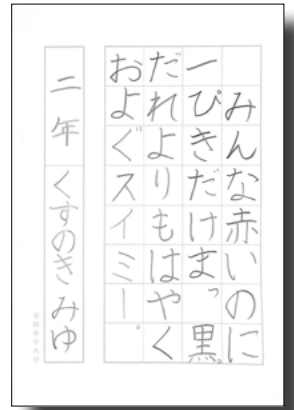 みんな赤いのに
一ぴきだけまっ黒。
だれよりもはやく
およぐスイミー。
二年 くすのき みゆ